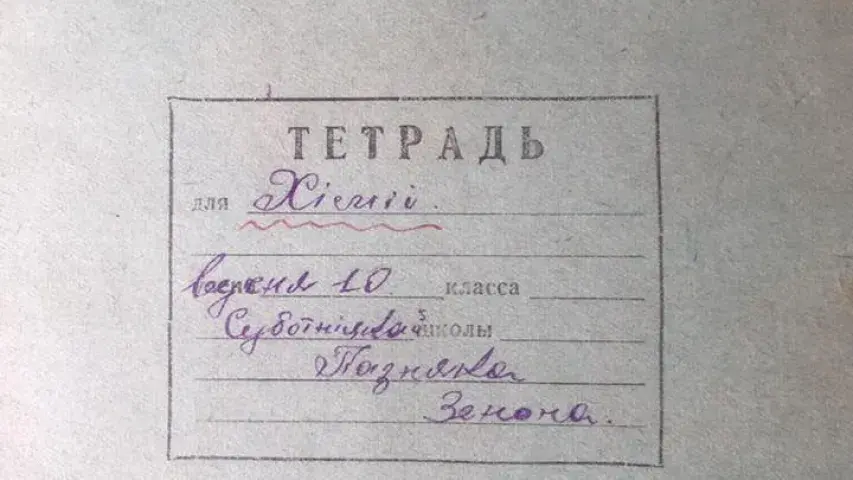 ТЕТРАДЬ
для Хіміі.
вучня 10 класса
Суботніцкай школы
Пазняка
Зенона.